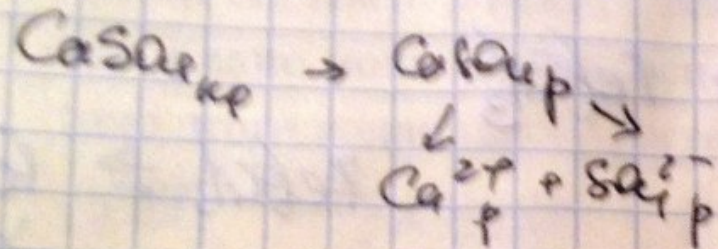 CaSO₄ кр → CaSO₄ р
↙ ↘
Ca²⁺ р + SO₄²⁻ р